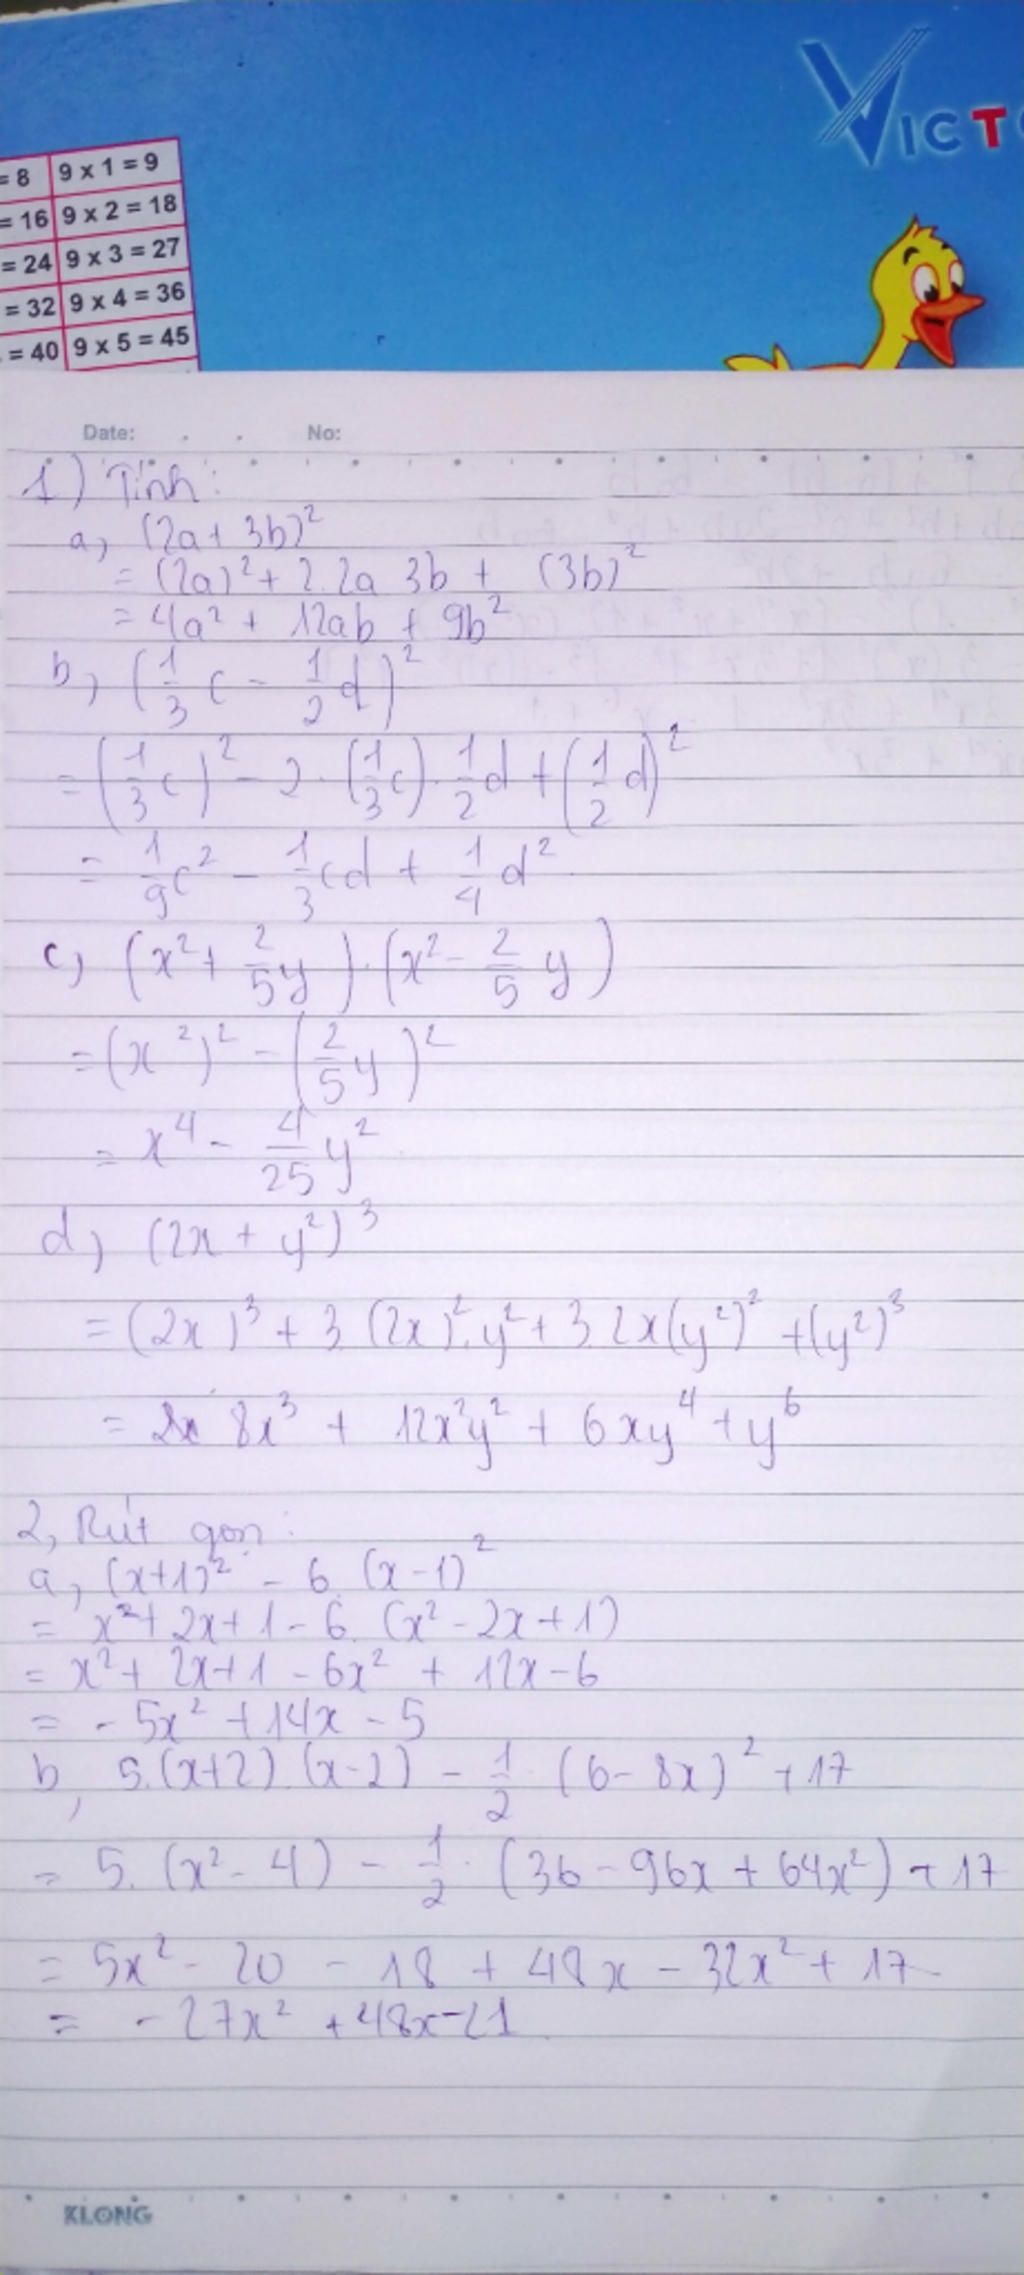 VICT
= 8 9 x 1 = 9
= 16 9 x 2 = 18
= 24 9 x 3 = 27
= 32 9 x 4 = 36
= 40 9 x 5 = 45
Date: . . No:
1) Tính:
a, (2a + 3b)²
= (2a)² + 2.2a 3b + (3b)²
= 4a² + 12ab + 9b²
b, (1/3 c - 1/2 d)²
= (1/3 c)² - 2 · (1/3 c) · 1/2 d + (1/2 d)²
= 1/9 c² - 1/3 cd + 1/4 d²
c, (x² + 2/5 y) · (x² - 2/5 y)
= (x²)² - (2/5 y)²
= x⁴ - 4/25 y²
d, (2x + y²)³
= (2x)³ + 3.(2x)².y² + 3.2x(y²)² + (y²)³
= 8x³ + 12x²y² + 6xy⁴ + y⁶
2, Rút gọn:
a, (x+1)² - 6.(x-1)²
= x² + 2x + 1 - 6.(x² - 2x + 1)
= x² + 2x + 1 - 6x² + 12x - 6
= - 5x² + 14x - 5
b, 5.(x+2).(x-2) - 1/2 · (6 - 8x)² + 17
= 5.(x² - 4) - 1/2 · (36 - 96x + 64x²) + 17
= 5x² - 20 - 18 + 48x - 32x² + 17
= - 27x² + 48x - 21
KLONG